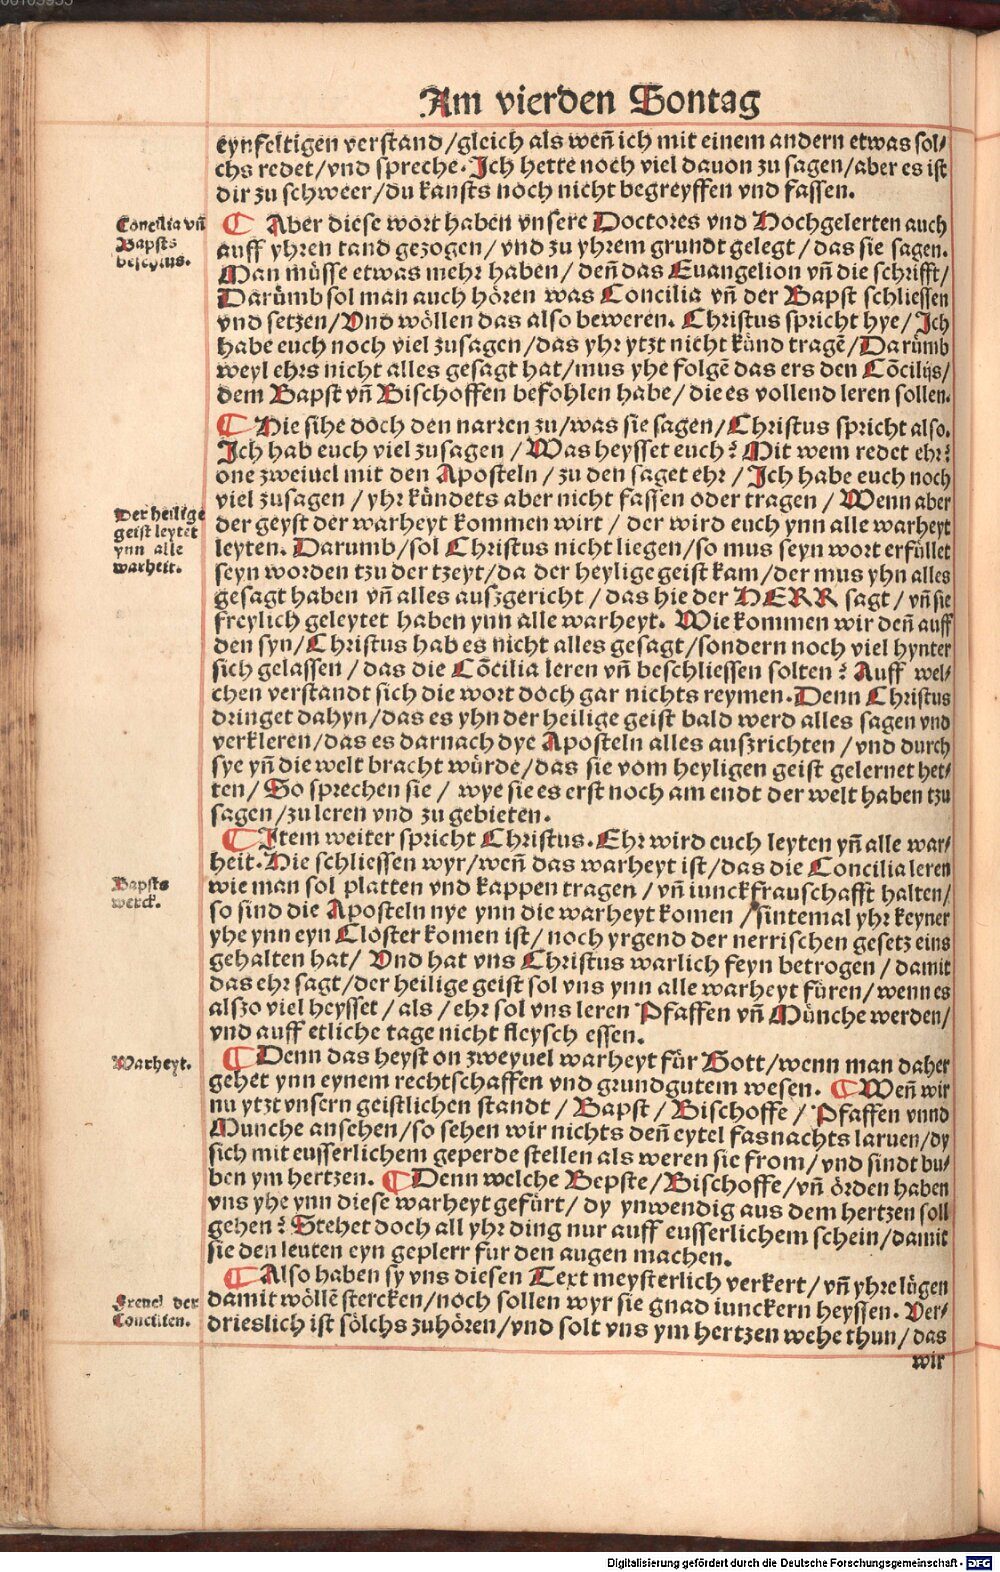 Am vierden Sontag
eynfeltigen verstand/gleich als weñ ich mit einem andern etwas sol-
chs redet/vnd spreche. Ich hette noch viel dauon zu sagen/aber es ist
dir zu schweer/du kansts noch nicht begreyffen vnd fassen.
Concilia vñ
Bapsts
¶ Aber diese wort haben vnsere Doctores vnd Hochgelerten auch
auff yhren tand gezogen/vnd zu yhrem grundt gelegt/das sie sagen.
Man müsse etwas mehr haben/deñ das Euangelion vñ die schrifft/
Darümb sol man auch hören was Concilia vñ der Bapst schliessen
vnd setzen/Vnd wöllen das also beweren. Christus spricht hye/Ich
habe euch noch viel zusagen/das yhr ytzt nicht künd tragẽ/Darümb
weyl ehrs nicht alles gesagt hat/mus yhe folgẽ das ers den Cõcilijs/
dem Bapst vñ Bischoffen befohlen habe/die es vollend leren sollen.
¶ Hie sihe doch den narren zu/was sie sagen/Christus spricht also.
Ich hab euch viel zusagen/Was heysset euch? Mit wem redet ehr?
one zweiuel mit den Aposteln/zu den saget ehr/Ich habe euch noch
viel zusagen/yhr kündets aber nicht fassen oder tragen/Wenn aber
der geyst der warheyt kommen wirt/der wird euch ynn alle warheyt
leyten. Darumb/sol Christus nicht liegen/so mus seyn wort erfüllet
seyn worden tzu der tzeyt/da der heylige geist kam/der mus yhn alles
gesagt haben vñ alles auszgericht/das hie der HERR sagt/vñ sie
freylich geleytet haben ynn alle warheyt. Wie kommen wir deñ auff
den syn/Christus hab es nicht alles gesagt/sondern noch viel hynter
sich gelassen/das die Cõcilia leren vñ beschliessen solten? Auff wel-
chen verstandt sich die wort doch gar nichts reymen. Denn Christus
dringet dahyn/das es yhn der heilige geist bald werd alles sagen vnd
verkleren/das es darnach dye Aposteln alles auszrichten/vnd durch
sye yñ die welt bracht würde/das sie vom heyligen geist gelernet het-
ten/So sprechen sie/wye sie es erst noch am endt der welt haben tzu
sagen/zu leren vnd zu gebieten.
Der heilige
geist leytet
ynn alle
warheit.
¶ Item weiter spricht Christus. Ehr wird euch leyten yñ alle war-
heit. Hie schliessen wyr/weñ das warheyt ist/das die Concilia leren
wie man sol platten vnd kappen tragen/vñ iunckfrauschafft halten/
so sind die Aposteln nye ynn die warheyt komen/sintemal yhr keyner
yhe ynn eyn Closter komen ist/noch yrgend der nerrischen gesetz eins
gehalten hat/Vnd hat vns Christus warlich feyn betrogen/damit
das ehr sagt/der heilige geist sol vns ynn alle warheyt füren/wenn es
alszo viel heysset/als/ehr sol vns leren Pfaffen vñ Münche werden/
vnd auff etliche tage nicht fleysch essen.
Bapsts
werck.
Warheyt.
¶ Denn das heyst on zweyuel warheyt für Gott/wenn man daher
gehet ynn eynem rechtschaffen vnd grundgutem wesen. ¶ Weñ wir
nu ytzt vnsern geistlichen standt/Bapst/Bischoffe/Pfaffen vnnd
Munche ansehen/so sehen wir nichts deñ eytel fasnachts laruen/dy
sich mit eusserlichem geperde stellen als weren sie from/vnd sindt bu-
ben ym hertzen. ¶ Denn welche Bepste/Bischoffe/vñ örden haben
vns yhe ynn diese warheyt gefürt/dy ynwendig aus dem hertzen soll
gehen? Stehet doch all yhr ding nur auff eusserlichem schein/damit
sie den leuten eyn geplerr fur den augen machen.
¶ Also haben sy vns diesen Text meysterlich verkert/vñ yhre lügen
damit wöllẽ stercken/noch sollen wyr sie gnad iunckern heyssen. Ver-
drieslich ist sölchs zuhören/vnd solt vns ym hertzen wehe thun/das
Freuel der
Concilien.
wir
Digitalisierung gefördert durch die Deutsche Forschungsgemeinschaft - DFG